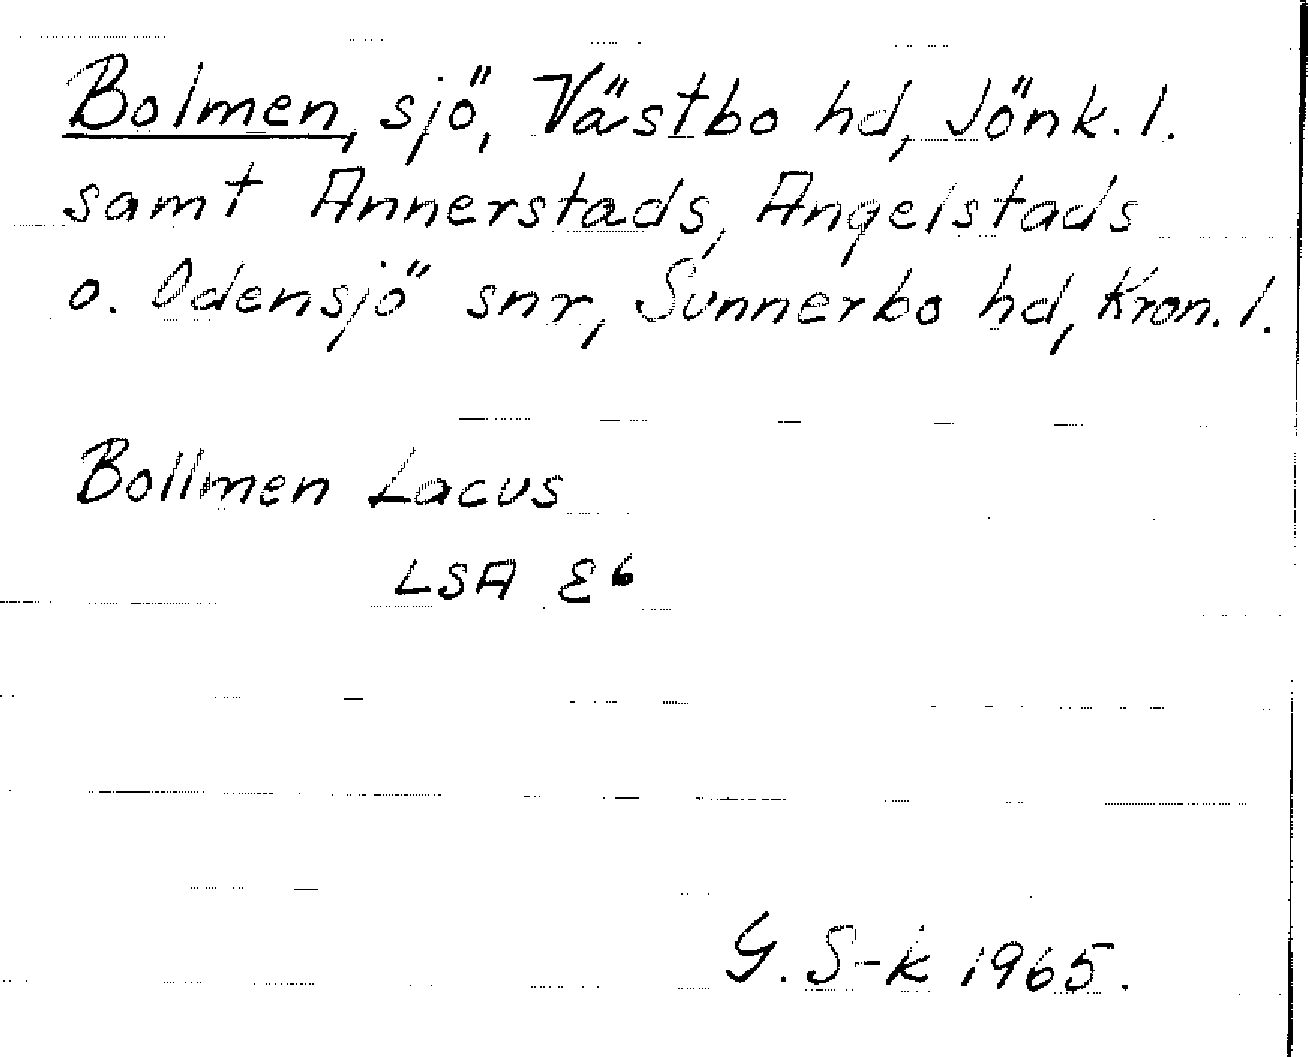 Bolmen, sjö, Västbo hd, Jönk. l.
samt Annerstads, Angelstads
o. Odensjö snr, Sunnerbo hd, Kron. l.
Bollmen Lacus
LSA E6
G. S-k 1965.